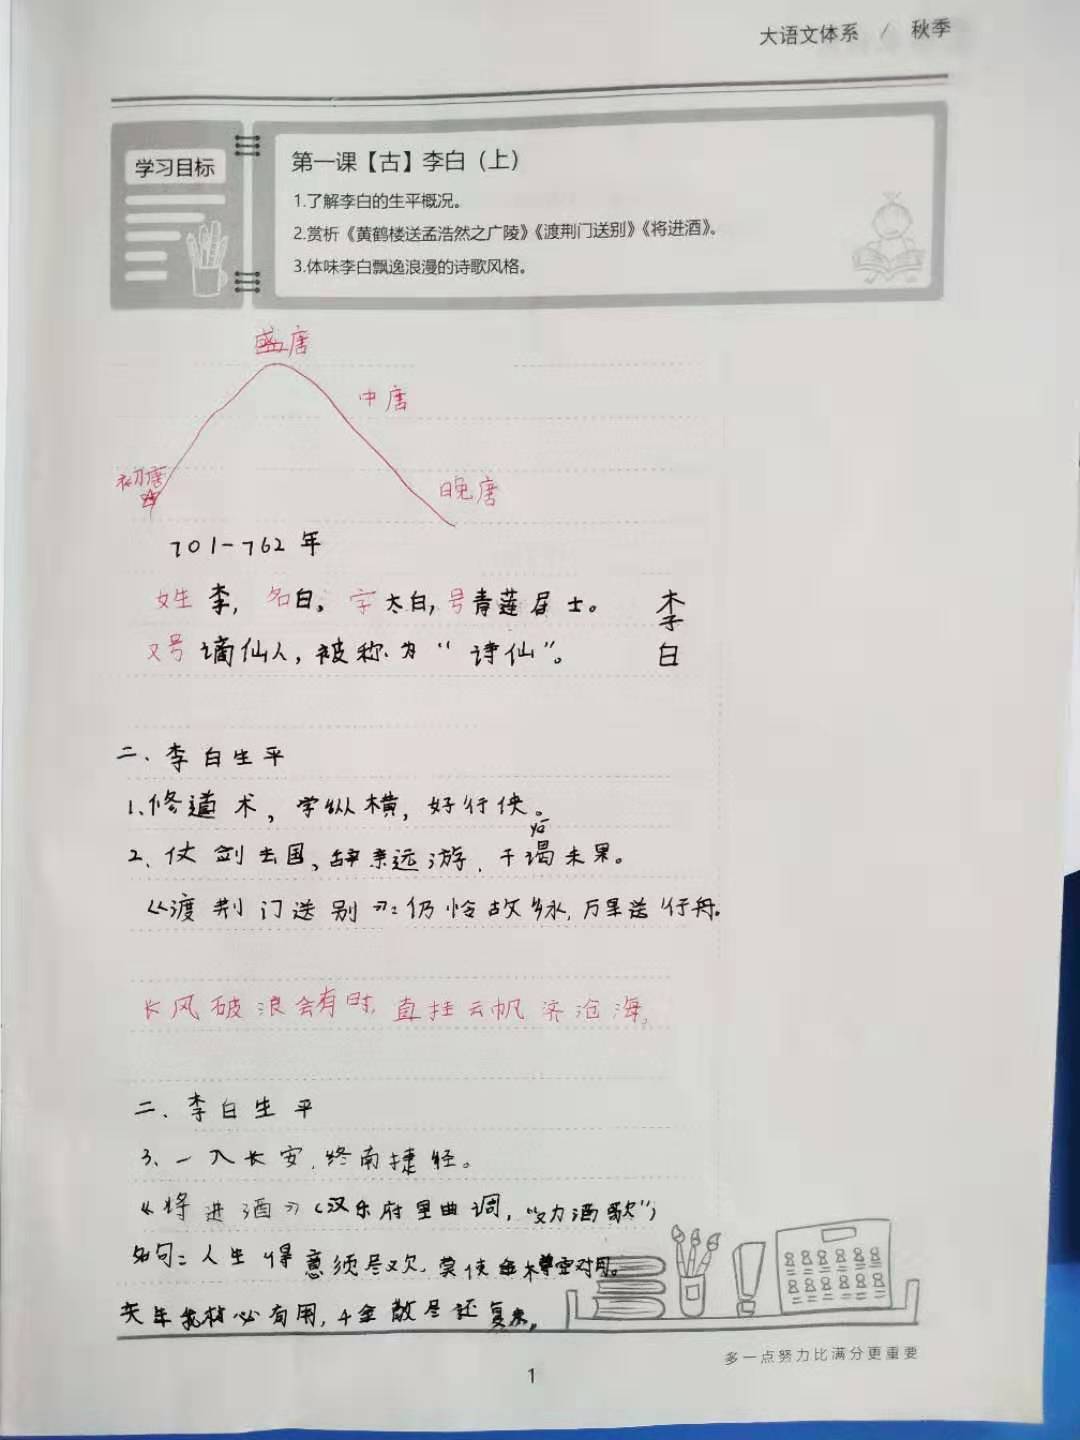 大语文体系 / 秋季
学习目标
第一课【古】李白（上）
1.了解李白的生平概况。
2.赏析《黄鹤楼送孟浩然之广陵》《渡荆门送别》《将进酒》。
3.体味李白飘逸浪漫的诗歌风格。
盛唐
中唐
初唐
晚唐
701-762年
姓李，名白。字太白，号青莲居士。
李
白
又号谪仙人，被称为“诗仙”。
二、李白生平
1.修道术，学纵横，好行侠。
yè
2、仗剑去国，辞亲远游，干谒未果。
《渡荆门送别》：仍怜故乡水，万里送行舟。
长风破浪会有时，直挂云帆济沧海。
二、李白生平
3、一入长安，终南捷径。
《将进酒》（汉乐府里曲调，“劝酒歌”）
名句：人生得意须尽欢，莫使金樽空对月。
天生我材必有用，千金散尽还复来。
多一点努力比满分更重要
1